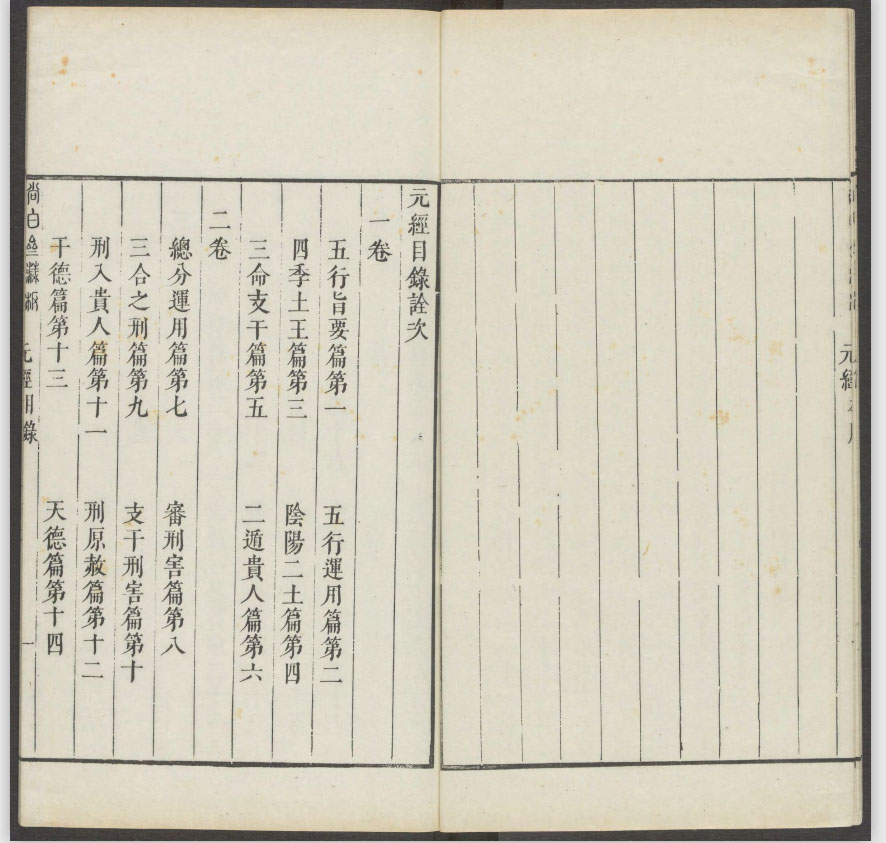 元經
元經目錄詮次
一卷
五行旨要篇第一　五行運用篇第二
四季土王篇第三　陰陽二土篇第四
三命支干篇第五　二遁貴人篇第六
二卷
總分運用篇第七　審刑害篇第八
三合之刑篇第九　支干刑害篇第十
刑入貴人篇第十一　刑原赦篇第十二
干德篇第十三　天德篇第十四
尚白 元經目錄 一